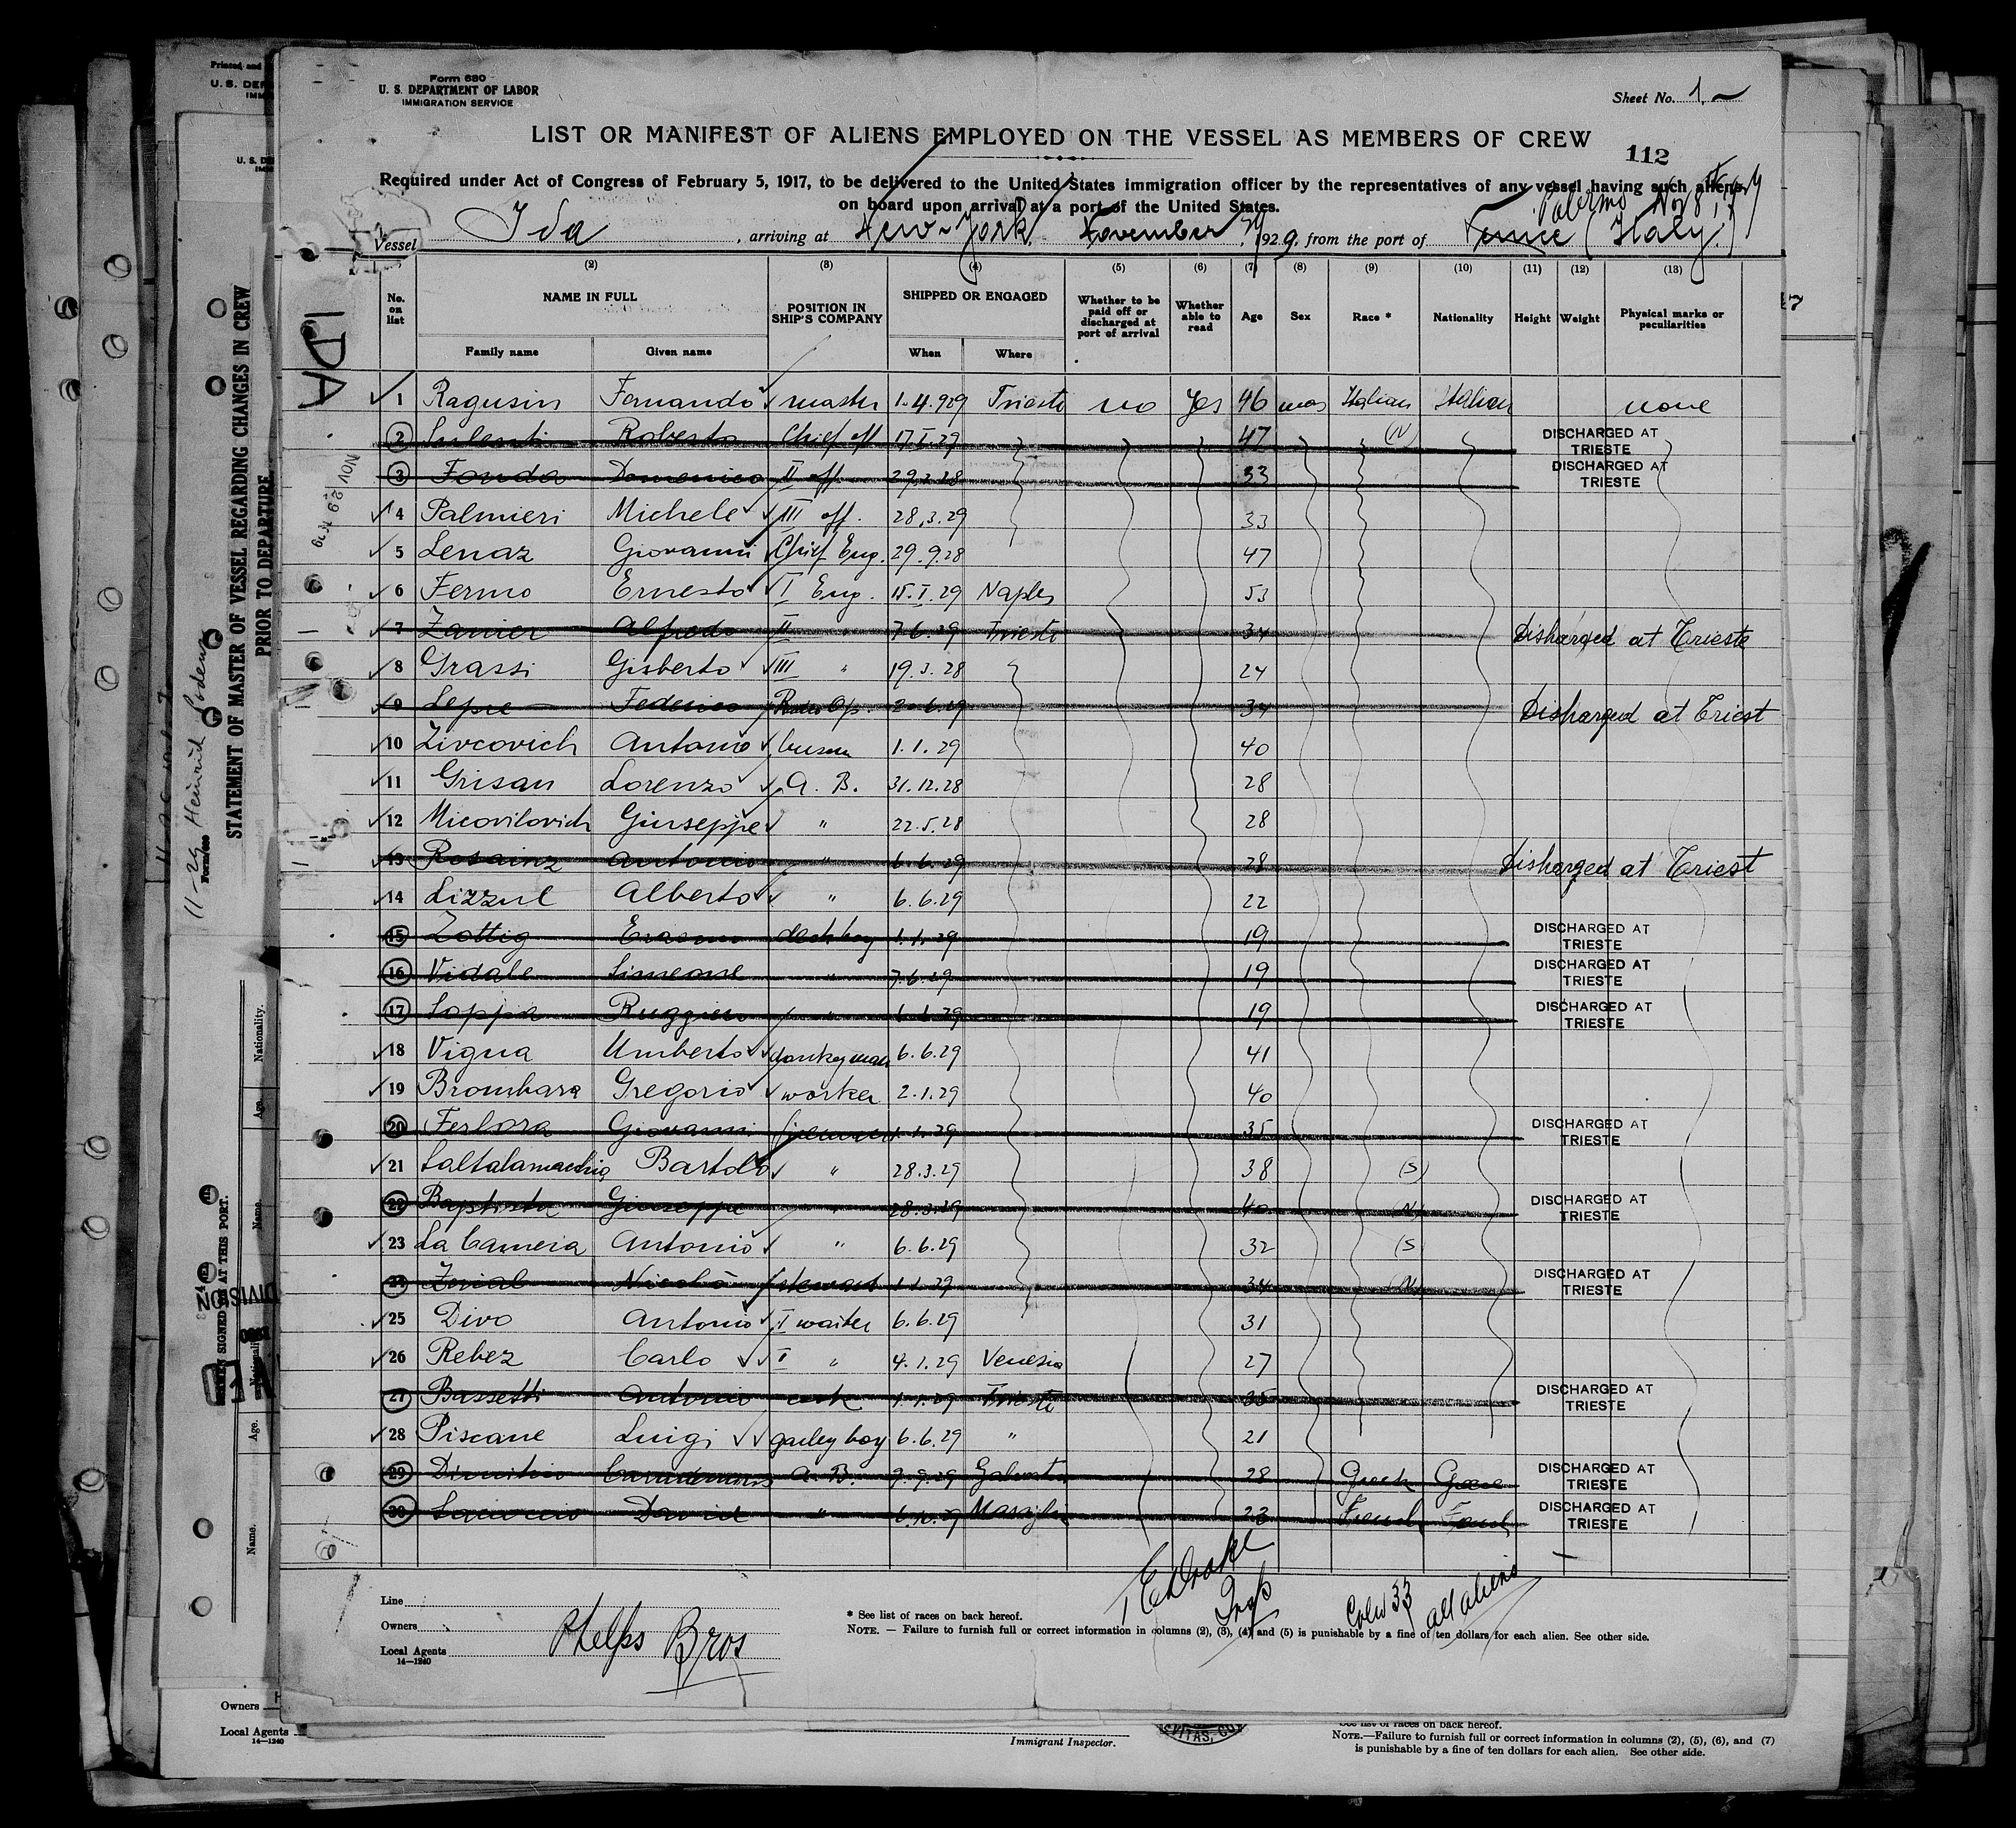 Form 680
U. S. DEPARTMENT OF LABOR
IMMIGRATION SERVICE
Sheet No. 1.
LIST OR MANIFEST OF ALIENS EMPLOYED ON THE VESSEL AS MEMBERS OF CREW
112
Required under Act of Congress of February 5, 1917, to be delivered to the United States immigration officer by the representatives of any vessel having such aliens
on board upon arrival at a port of the United States.
Palermo Nov 8
Vessel Ida, arriving at New-York November 29, 1929, from the port of Venice (Italy)
(2) (3) (4) (5) (6) (7) (8) (9) (10) (11) (12) (13)
No. on list NAME IN FULL POSITION IN SHIP'S COMPANY SHIPPED OR ENGAGED Whether to be paid off or discharged at port of arrival Whether able to read Age Sex Race * Nationality Height Weight Physical marks or peculiarities
Family name Given name When Where
IDA
NOV 29 1929
1 Ragusin Fernando master 1.4.929 Trieste no Yes 46 mas Italian Italian none
2 Roberto Chief off 17.I.29 47 (N) DISCHARGED AT TRIESTE
3 Fonda Domenico II off. 33 DISCHARGED AT TRIESTE
4 Palmieri Michele III off. 28.3.29 33
5 Lenaz Giovanni Chief Eng. 29.9.28 47
6 Fermo Ernesto I Eng. 15.I.29 Naples 53
7 Zanier Alfredo II " 7.6.29 Trieste 34 Disharged at Trieste
8 Grassi Gisberto III " 19.3.28 24
9 Lepre Federico Radio Op. 34 Disharged at Triest
10 Zivcovich Antonio 1.1.29 40
11 Grisan Lorenzo A. B. 31.12.28 28
12 Micovilovich Giuseppe " 22.5.28 28
13 Rosainz Antonio " 6.6.29 28 Disharged at Triest
14 Lizzul Alberto " 6.6.29 22
15 Zottig Erasmo deck boy 1.1.29 19 DISCHARGED AT TRIESTE
16 Vidale Simeone " 7.6.29 19 DISCHARGED AT TRIESTE
17 Soppa Ruggiero " 19 DISCHARGED AT TRIESTE
18 Vigna Umberto donkeyman 6.6.29 41
19 Brombara Gregorio worker 2.1.29 40
20 Ferlora Giovanni fireman 1.1.29 35 DISCHARGED AT TRIESTE
21 Saltalamachia Bartolo " 28.3.29 38 (S)
22 Baptista Giuseppe " 28.3.29 40 (N) DISCHARGED AT TRIESTE
23 La Camera Antonio " 6.6.29 32 (S)
24 Zerial Nicolò steward 1.1.29 34 (N) DISCHARGED AT TRIESTE
25 Divo Antonio I waiter 6.6.29 31
26 Rebez Carlo I " 4.1.29 Venezia 27
27 Bassetti Antonio cook 1.1.29 Trieste 35 DISCHARGED AT TRIESTE
28 Piscane Luigi galley boy 6.6.29 " 21
29 Dimitrio A. B. 9.9.29 Galveston 28 Greek DISCHARGED AT TRIESTE
30 David " 6.10.29 Marsiglia 23 French French DISCHARGED AT TRIESTE
Line
Owners
Local Agents Phelps Bros
14—1240
* See list of races on back hereof.
NOTE. — Failure to furnish full or correct information in columns (2), (3), (4) and (5) is punishable by a fine of ten dollars for each alien. See other side.
Insp
Crew 33 all aliens
Printed and
U. S. DEP
IMM
U. S. D
STATEMENT OF MASTER OF VESSEL REGARDING CHANGES IN CREW
PRIOR TO DEPARTURE
11-29 Heinrich
Nationality.
Age.
Name.
SIGNED AT THIS PORT.
DIVISION
Age.
Name.
Owners
Local Agents
14—1240
Immigrant Inspector.
See list of races on back hereof.
NOTE.—Failure to furnish full or correct information in columns (2), (5), (6), and (7)
is punishable by a fine of ten dollars for each alien. See other side.